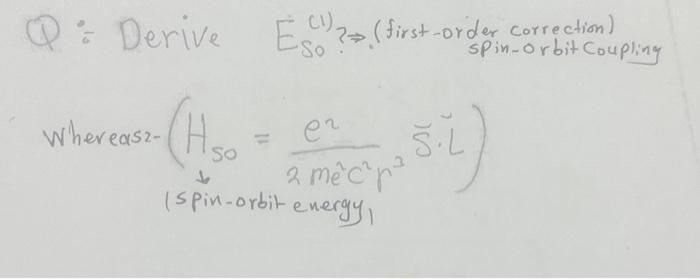 Q: Derive E_SO^(1)? ⇒ (first-order correction)
spin-orbit Coupling
Whereas:- (H_SO = e² / 2 me² c² r³ S̆·L̆)
↓
(spin-orbit energy)